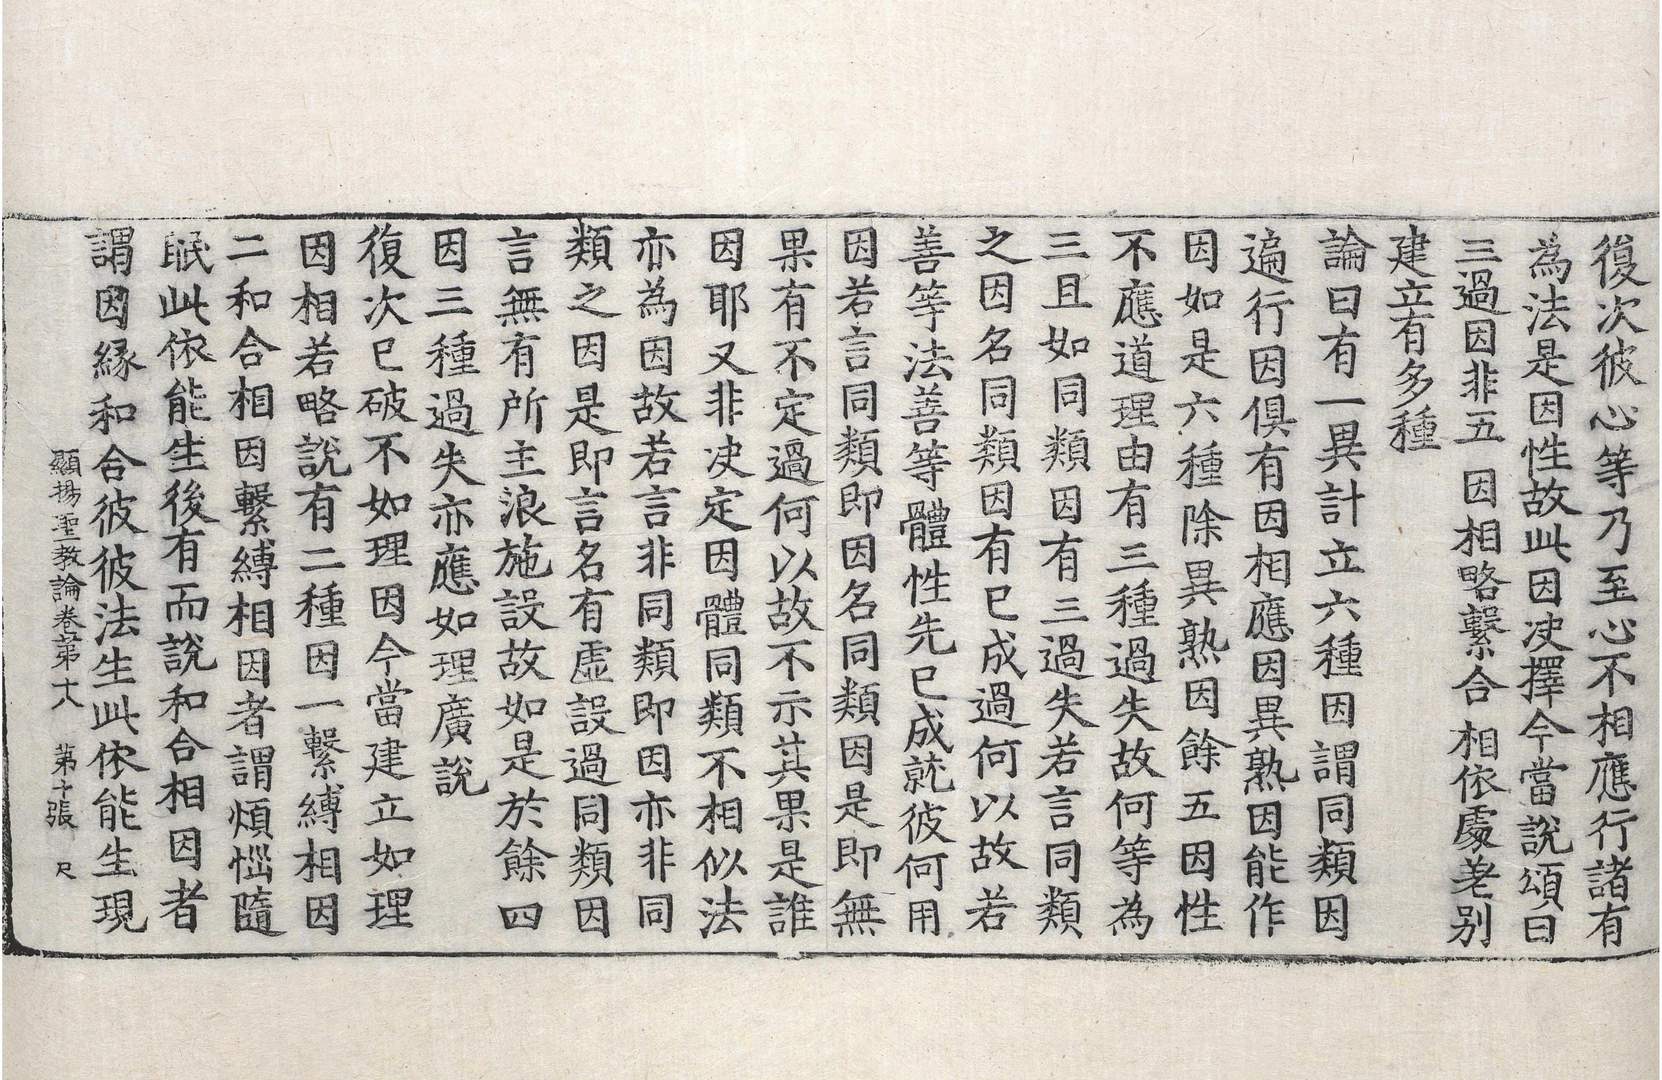 復次彼心等乃至心不相應行諸有
為法是因性故此因決擇今當說頌曰
三過因非五 因相略繫合 相依處差别
建立有多種
論曰有一異計立六種因謂同類因
遍行因俱有因相應因異熟因能作
因如是六種除異熟因餘五因性
不應道理由有三種過失故何等為
三且如同類因有三過失若言同類
之因名同類因有已成過何以故若
善等法善等體性先已成就彼何用
因若言同類即因名同類因是即無
果有不定過何以故不示其果是誰
因耶又非決定因體同類不相似法
亦為因故若言非同類即因亦非同
類之因是即言名有虛設過同類因
言無有所主浪施設故如是於餘四
因三種過失亦應如理廣說
復次已破不如理因今當建立如理
因相若略說有二種因一繫縛相因
二和合相因繫縛相因者謂煩惱隨
眠此依能生後有而說和合相因者
謂因緣和合彼彼法生此依能生現
顯揚聖教論卷第十八 第十張 尺